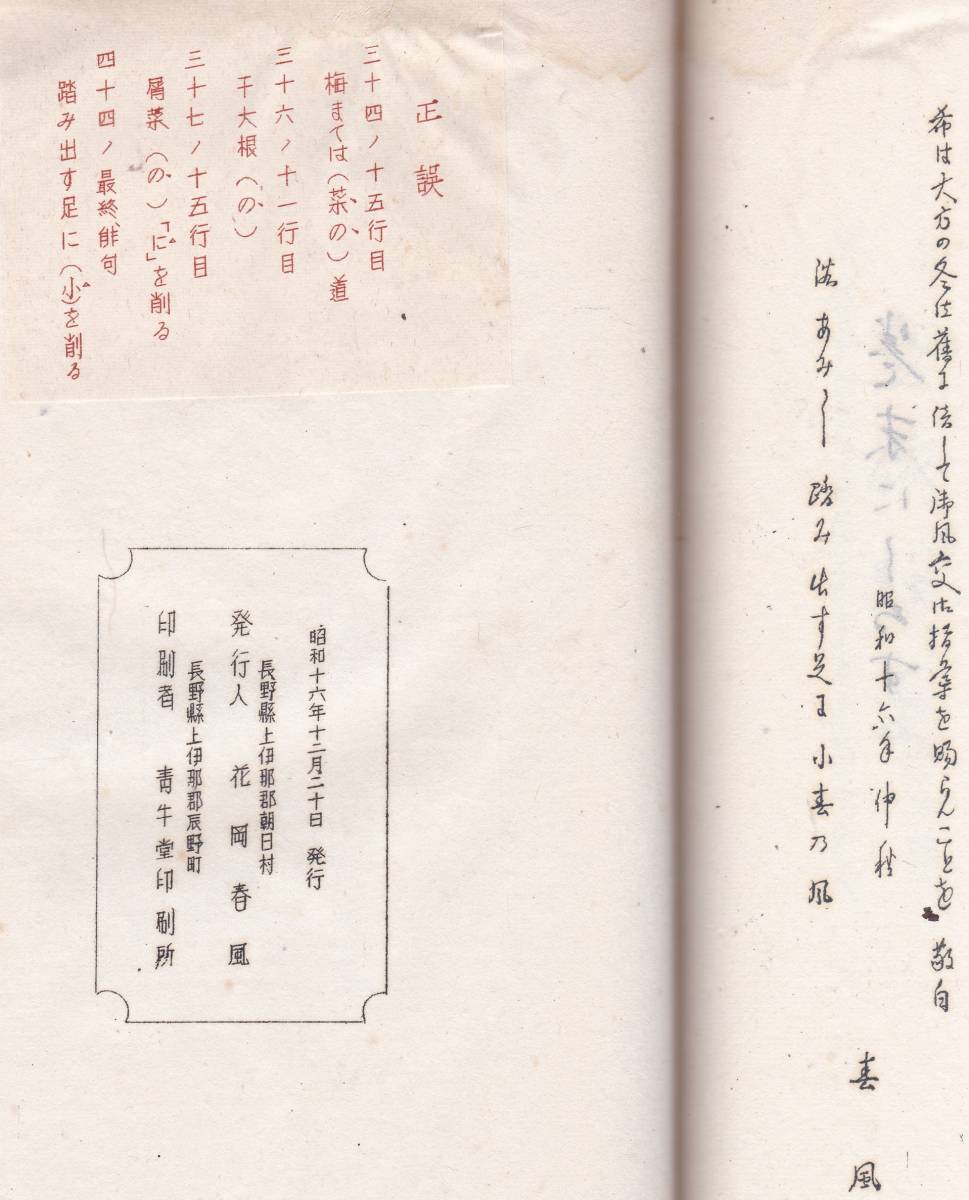 希は大方の冬は舊に倍して御風交御指導を賜らんことを 敬白
昭和十六年仲秋
踏み出す足に小春乃風
春風
正誤
三十四ノ十五行目
梅までは(菜の)道
三十六ノ十一行目
干大根(の)
三十七ノ十五行目
屑菜(の)「に」を削る
四十四ノ最終俳句
踏み出す足に(小)を削る
昭和十六年十二月二十日 発行
長野縣上伊那郡朝日村
発行人 花岡春風
長野縣上伊那郡辰野町
印刷者 青牛堂印刷所